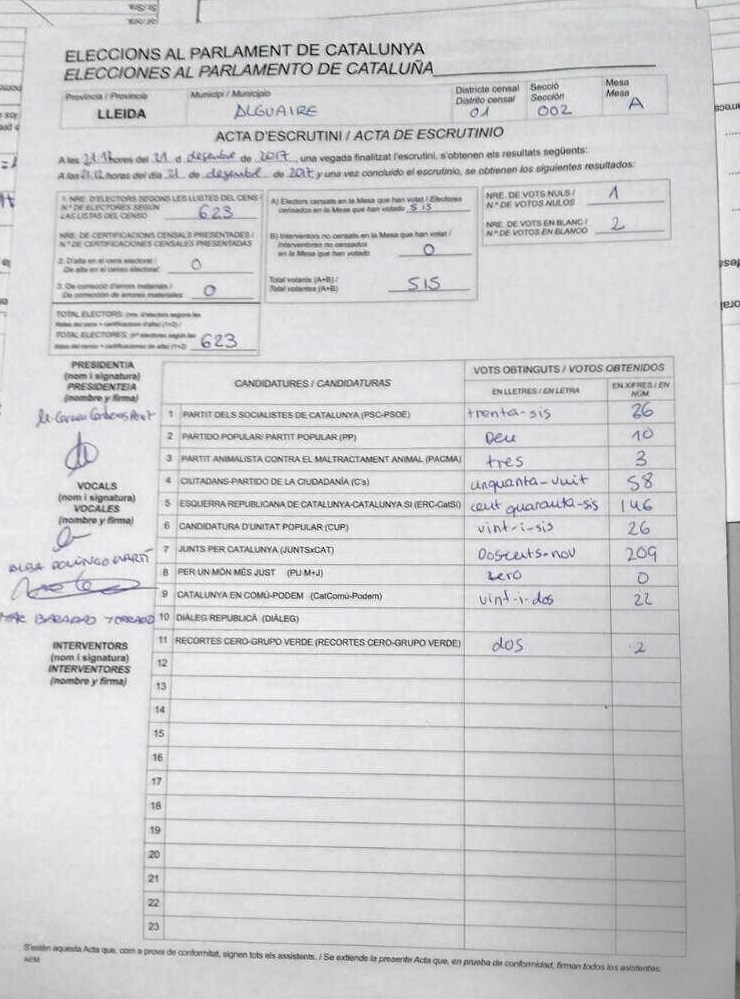 ELECCIONS AL PARLAMENT DE CATALUNYA
ELECCIONES AL PARLAMENTO DE CATALUÑA
Província / Provincia
LLEIDA
Municipi / Municipio
ALGUAIRE
Districte censal
Distrito censal
01
Secció
Sección
002
Mesa
Mesa
A
ACTA D'ESCRUTINI / ACTA DE ESCRUTINIO
A les 21.12 hores del 21 d desembre de 2017, una vegada finalitzat l'escrutini, s'obtenen els resultats següents:
A las 21.12 horas del día 21 de desembre de 2017 y una vez concluido el escrutinio, se obtienen los siguientes resultados:
1. NRE. D'ELECTORS SEGONS LES LLISTES DEL CENS /
N.º DE ELECTORES SEGÚN
LAS LISTAS DEL CENSO 623
NRE. DE CERTIFICACIONS CENSALS PRESENTADES /
N.º DE CERTIFICACIONES CENSALES PRESENTADAS
2. D'alta en el cens electoral /
De alta en el censo electoral: 0
3. De correcció d'errors materials /
De corrección de errores materiales: 0
TOTAL ELECTORS: (nre. d'electors segons les
llistes del cens + certificacions d'alta) (1+2) /
TOTAL ELECTORES: (nº electores según las
listas del censo + certificaciones de alta) (1+2) 623
A) Electors censats en la Mesa que han votat / Electores
censados en la Mesa que han votado 515
B) Interventors no censats en la Mesa que han votat /
Interventores no censados
en la Mesa que han votado 0
Total votants (A+B) /
Total votantes (A+B) 515
NRE. DE VOTS NULS /
N.º DE VOTOS NULOS 1
NRE. DE VOTS EN BLANC /
N.º DE VOTOS EN BLANCO 2
PRESIDENTIA
(nom i signatura)
PRESIDENTE/A
(nombre y firma)
VOCALS
(nom i signatura)
VOCALES
(nombre y firma)
ALBA DOMINGO MARTÍ
INTERVENTORS
(nom i signatura)
INTERVENTORES
(nombre y firma)
CANDIDATURES / CANDIDATURAS
VOTS OBTINGUTS / VOTOS OBTENIDOS
EN LLETRES / EN LETRA
EN XIFRES / EN NÚM.
1 PARTIT DELS SOCIALISTES DE CATALUNYA (PSC-PSOE) trenta-sis 36
2 PARTIDO POPULAR/ PARTIT POPULAR (PP) Deu 10
3 PARTIT ANIMALISTA CONTRA EL MALTRACTAMENT ANIMAL (PACMA) tres 3
4 CIUTADANS-PARTIDO DE LA CIUDADANÍA (C's) cinquanta-vuit 58
5 ESQUERRA REPUBLICANA DE CATALUNYA-CATALUNYA SI (ERC-CatSí) cent quaranta-sis 146
6 CANDIDATURA D'UNITAT POPULAR (CUP) vint-i-sis 26
7 JUNTS PER CATALUNYA (JUNTSxCAT) Doscents-nou 209
8 PER UN MÓN MÉS JUST (PUM+J) zero 0
9 CATALUNYA EN COMÚ-PODEM (CatComú-Podem) vint-i-dos 22
10 DIÀLEG REPUBLICÀ (DIÀLEG)
11 RECORTES CERO-GRUPO VERDE (RECORTES CERO-GRUPO VERDE) dos 2
12
13
14
15
16
17
18
19
20
21
22
23
S'estén aquesta Acta que, com a prova de conformitat, signen tots els assistents. / Se extiende la presente Acta que, en prueba de conformidad, firman todos los asistentes.
AEM